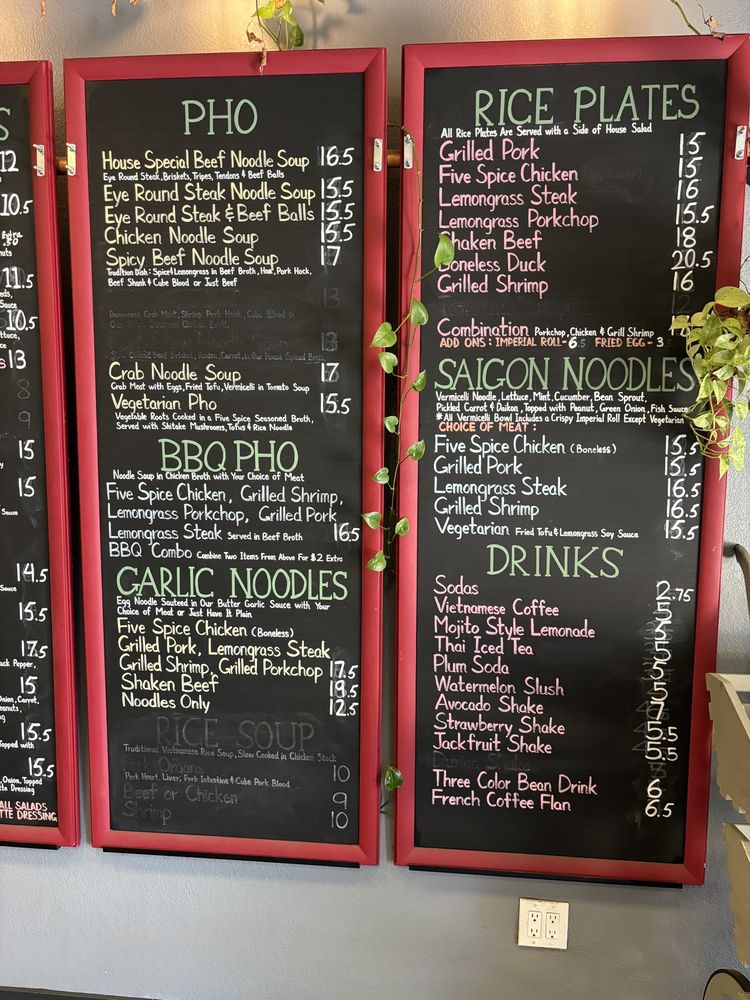 S
12
10.5
11.5
10.5
13
8
9
15
15
14.5
15.5
17.5
15
15.5
15.5
ALL SALADS
TTE DRESSING
PHO
House Special Beef Noodle Soup 16.5
Eye Round Steak, Briskets, Tripes, Tendons & Beef Balls
Eye Round Steak Noodle Soup 15.5
Eye Round Steak & Beef Balls 15.5
Chicken Noodle Soup 15.5
Spicy Beef Noodle Soup 17
Tradition Dish: Spice & Lemongrass in Beef Broth, Ham, Pork Hock,
Beef Shank & Cube Blood or Just Beef
13
Crab Noodle Soup 17
Crab Meat with Eggs, Fried Tofu, Vermicelli in Tomato Soup
Vegetarian Pho 15.5
Vegetable Roots Cooked in a Five Spice Seasoned Broth,
Served with Shitake Mushrooms, Tofus & Rice Noodle
BBQ PHO
Noodle Soup in Chicken Broth with Your Choice of Meat
Five Spice Chicken, Grilled Shrimp,
Lemongrass Porkchop, Grilled Pork
Lemongrass Steak Served in Beef Broth 16.5
BBQ Combo Combine Two Items From Above For $2 Extra
GARLIC NOODLES
Egg Noodle Sauteed in Our Butter Garlic Sauce with Your
Choice of Meat or Just Have It Plain
Five Spice Chicken (Boneless)
Grilled Pork, Lemongrass Steak
Grilled Shrimp, Grilled Porkchop 17.5
Shaken Beef 19.5
Noodles Only 12.5
RICE SOUP
Traditional Vietnamese Rice Soup, Slow Cooked in Chicken Stock
Pork Organs 10
Pork Heart, Liver, Pork Intestine & Cube Pork Blood
Beef or Chicken 9
Shrimp 10
RICE PLATES
All Rice Plates Are Served with a Side of House Salad
Grilled Pork 15
Five Spice Chicken 15
Lemongrass Steak 16
Lemongrass Porkchop 15.5
Shaken Beef 18
Boneless Duck 20.5
Grilled Shrimp 16
Combination Porkchop, Chicken & Grill Shrimp
ADD ONS: IMPERIAL ROLL-6.5 FRIED EGG-3
SAIGON NOODLES
Vermicelli Noodle, Lettuce, Mint, Cucumber, Bean Sprout,
Pickled Carrot & Daikon, Topped with Peanut, Green Onion, Fish Sauce
*All Vermicelli Bowl Includes a Crispy Imperial Roll Except Vegetarian
CHOICE OF MEAT:
Five Spice Chicken (Boneless) 15.5
Grilled Pork 15.5
Lemongrass Steak 16.5
Grilled Shrimp 16.5
Vegetarian Fried Tofu & Lemongrass Soy Sauce 15.5
DRINKS
Sodas 2.75
Vietnamese Coffee 5
Mojito Style Lemonade 5
Thai Iced Tea 5
Plum Soda 5
Watermelon Slush 5
Avocado Shake 7
Strawberry Shake 5.5
Jackfruit Shake 5.5
Durian Shake
Three Color Bean Drink 6
French Coffee Flan 6.5